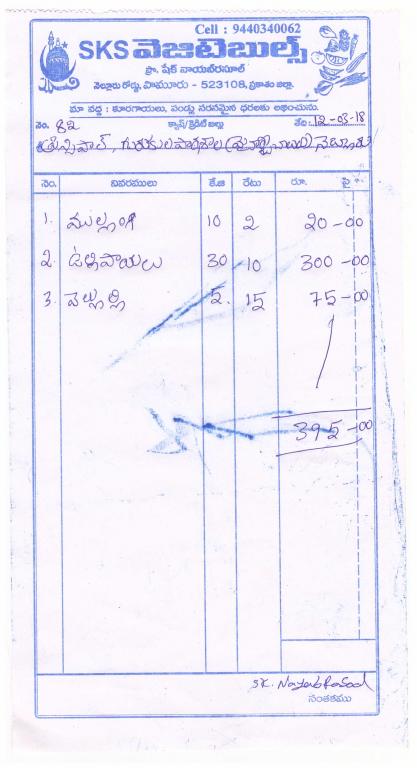 Cell : 9440340062
SKS వెజిటెబుల్స్
ప్రొ. షేక్ నాయబ్‌రసూల్
నెల్లూరు రోడ్డు, పామూరు - 523108, ప్రకాశం జిల్లా.
మా వద్ద : కూరగాయలు, పండ్లు సరసమైన ధరలకు లభించును.
నెం. 82 క్యాష్/క్రెడిట్ బిల్లు తేది: 12-03-18
ప్రిన్సిపాల్, గురుకుల పాఠశాల
నెం. వివరములు కే.జి రేటు రూ. పై
1. ముల్లంగి 10 2 20-00
2. ఉల్లిపాయలు 30 10 300-00
3. వెల్లుల్లి 5 15 75-00
395-00
SK. Nayab Rasool
సంతకము